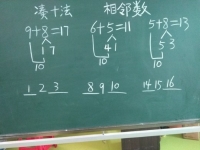 凑十法 相邻数
9+8=17 6+5=11 5+8=13
1 7 4 1 5 3
10 10 10
1 2 3 8 9 10 14 15 16